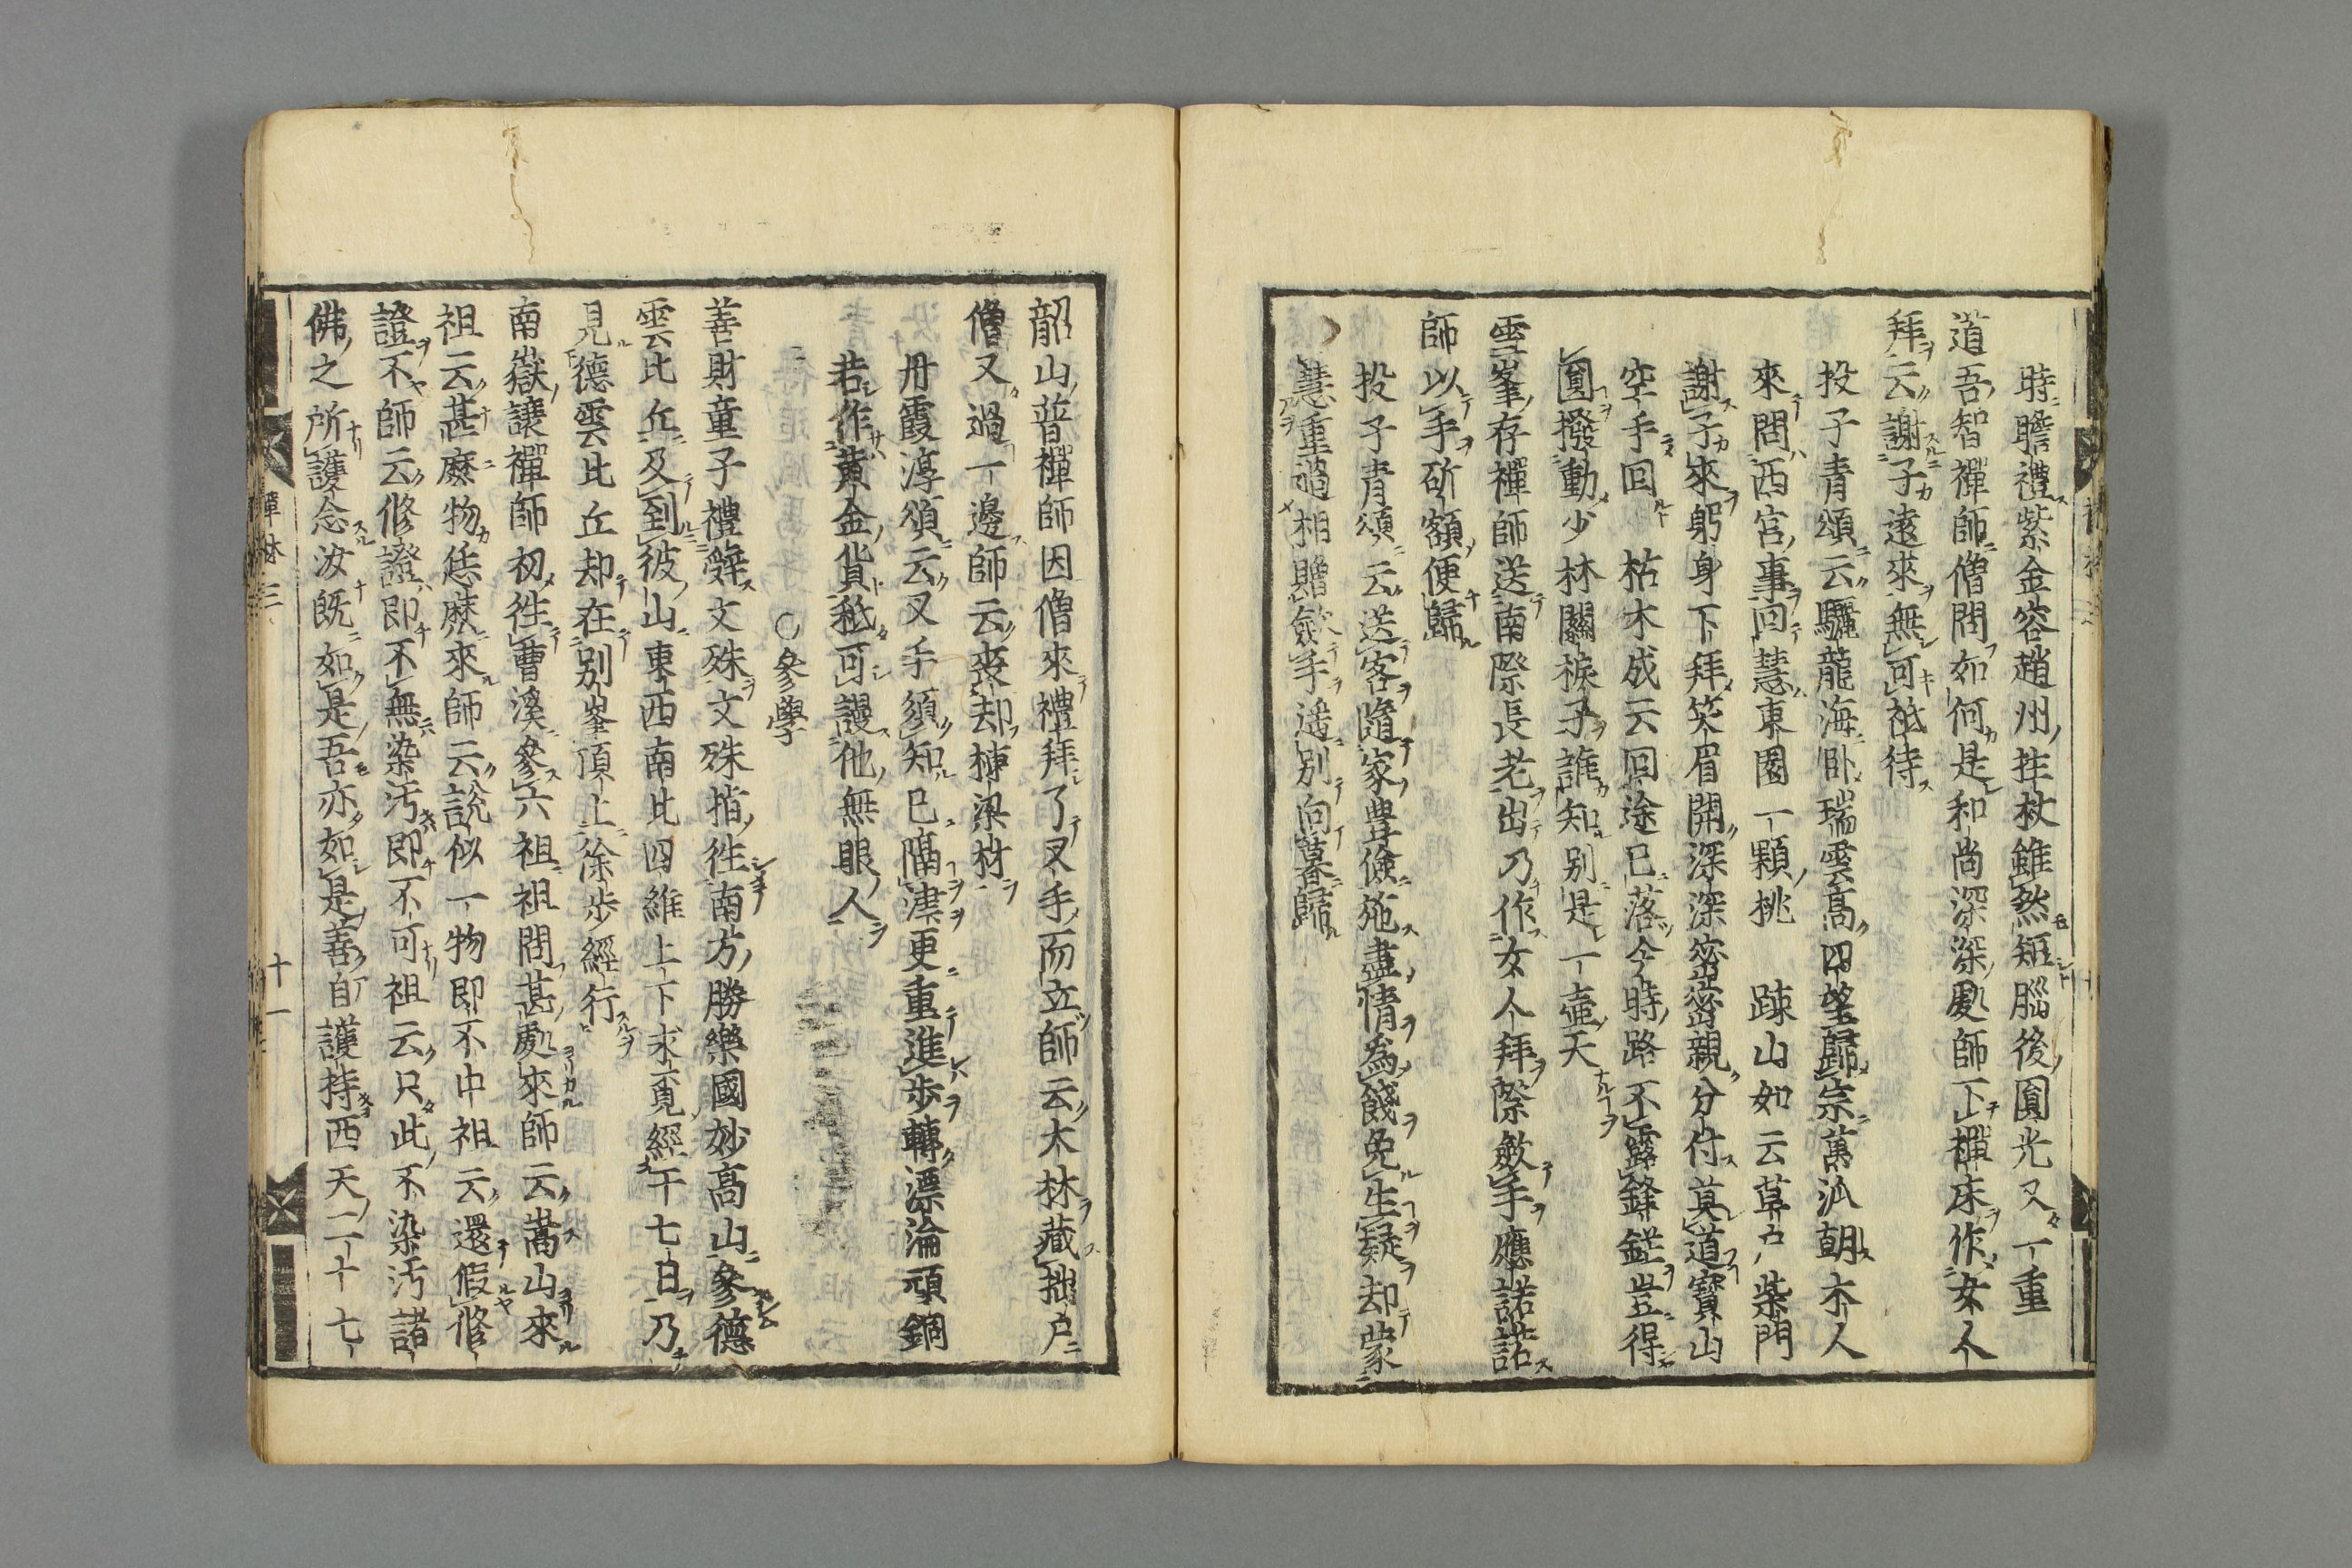 時瞻禮紫金容趙州拄杖雖然短腦後圓光又一重
道吾智禪師僧問如何是和尚深深處師下禪床作女人
拜云謝子遠來無可祗待
投子青頌云驪龍海臥瑞雲高四望歸宗萬派朝木人
來問西宮事回慧東園一顆桃　踈山如云草戸柴門
謝子來躬身下拜笑眉開深深深密密親分付莫道寶山
空手回　枯木成云回途已落今時路不露鋒鋩豈得
圓撥動少林關棙子誰知別是一壷天
雪峯存禪師送南際長老出乃作女人拜際斂手應諾諾
師以手斫額便歸
投子青頌云送客隨家豊儉施盡情為餞免生疑却蒙
慧重過相贈斂手遥別向暮歸
韶山普禪師因僧來禮拜了叉手而立師云大林藏拙戸
僧又過一邊師云喪却棟梁材
丹霞淳頌云叉手須知已隔津更重進歩轉漂淪頑銅
若作黄金貨秪可謾他無眼人
○參學
善財童子禮辭文殊文殊指往南方勝樂國妙高山參德
雲比丘及到彼山東西南北四維上下求覓經于七日乃
見德雲比丘却在別峯頂上徐歩經行
南嶽讓禪師初往曹溪參六祖祖問甚處來師云嵩山來
祖云甚麽物恁麽來師云説似一物即不中祖云還假修
證不師云修證即不無染汚即不可祖云只此不染汚諸
佛之所護念汝既如是吾亦如是善自護持西天二十七
禪林三
十一